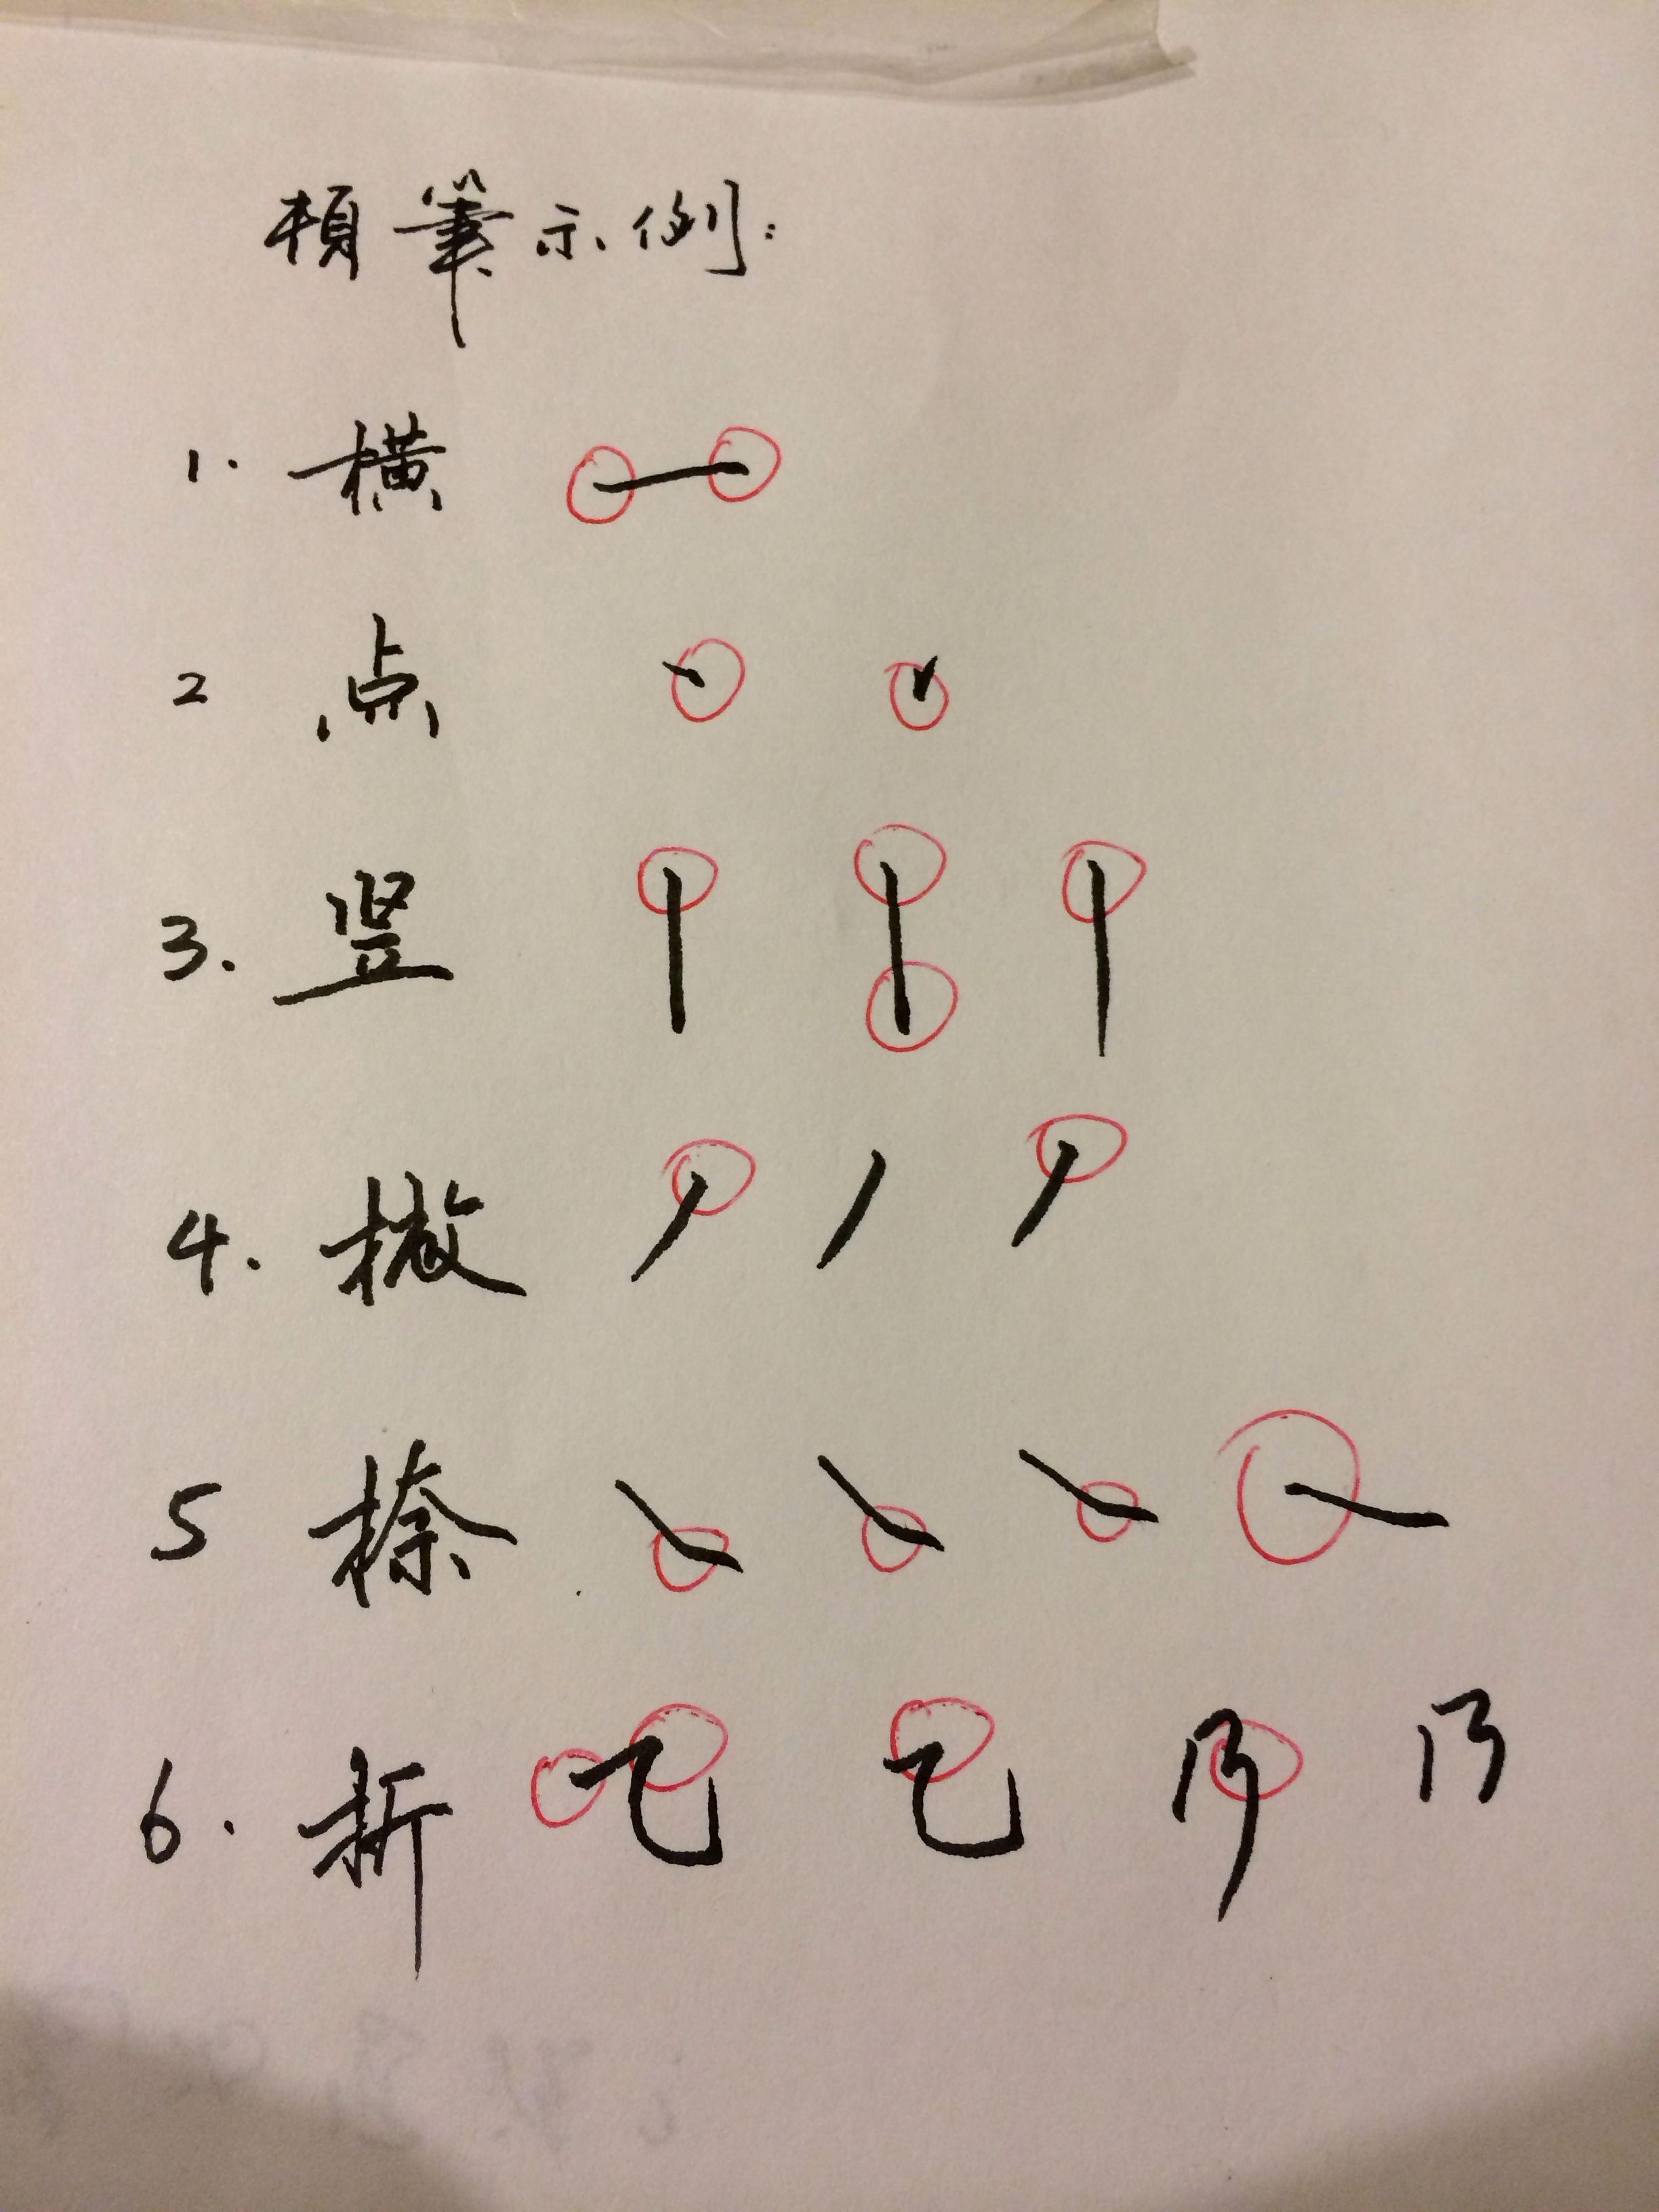 頓筆示例:
1. 横
2 点
3. 竖
4. 撇
5 捺
6. 折